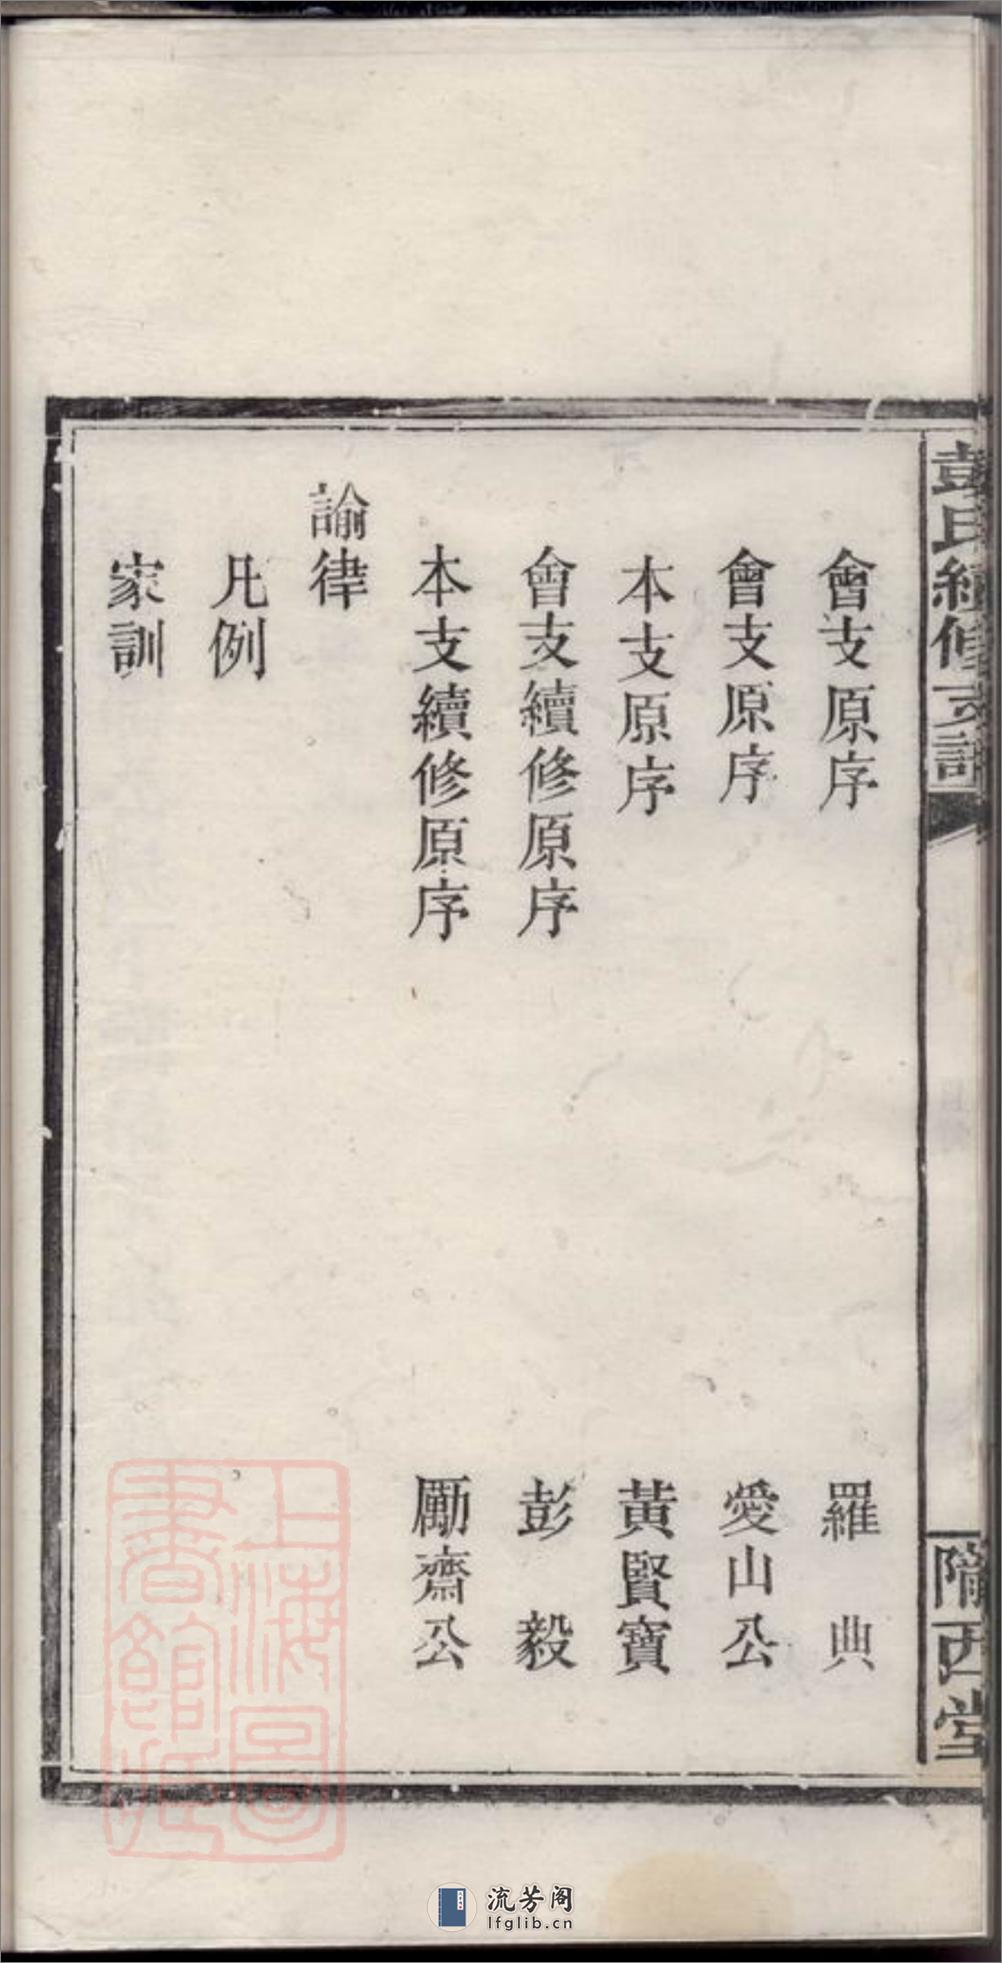 彭氏續修支譜
隴西堂
會支原序 羅典
會支原序 愛山公
本支原序 黃賢寶
會支續修原序 彭毅
本支續修原序 勵齋公
諭律
凡例
家訓
上海圖書館藏
流芳阁
lfglib.cn